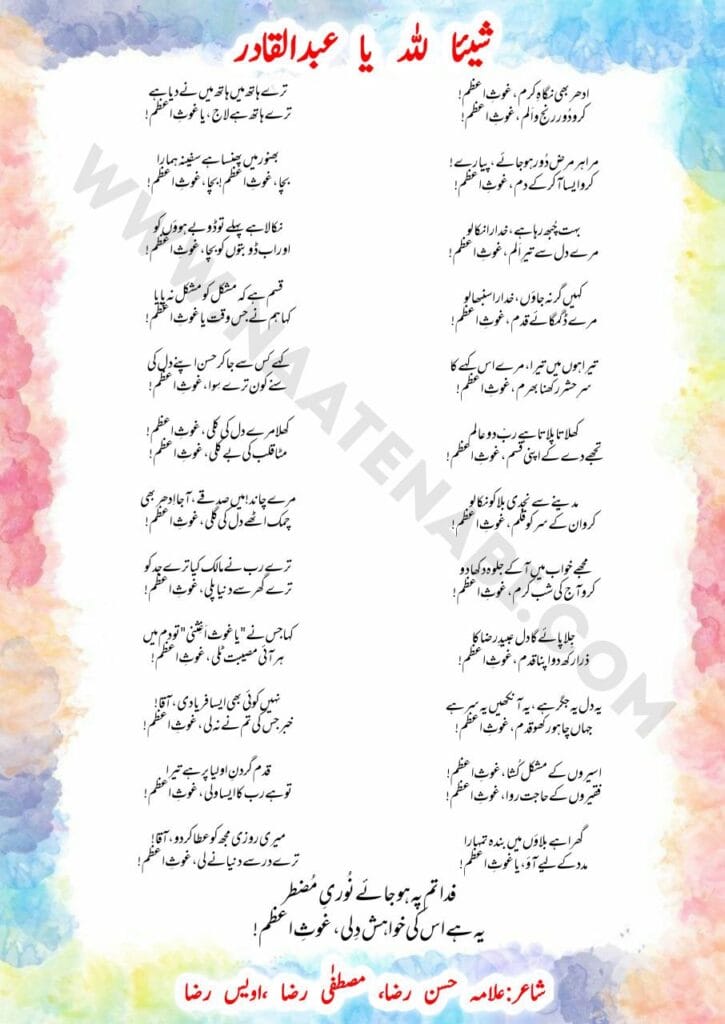 شیئا للہ یا عبدالقادر
ادھر بھی نگاہِ کرم، غوثِ اعظم!
کرو دُور رنج و اَلم، غوثِ اعظم!
مرا ہر مرض دُور ہوجائے، پیارے!
کرو ایسا آ کر کے دم، غوثِ اعظم!
بہت چُبھ رہا ہے، خدارا نکالو
مرے دل سے تیرِ اَلم، غوثِ اعظم!
کہیں گر نہ جاؤں، خدارا سنبھالو
مرے ڈگمگائے قدم، غوثِ اعظم!
تیرا ہوں میں تیرا، مرے اس کہے کا
سرِ حشر رکھنا بھرم، غوثِ اعظم!
کھلاتا پلاتا ہے ربِ دو عالم
تجھے دے کے اپنی قسم، غوثِ اعظم!
مدینے سے نجدی بلا کو نکالو
کرو ان کے سر کو قلم، غوثِ اعظم!
مجھے خواب میں آ کے جلوہ دکھا دو
کرو آج کی شب کرم، غوثِ اعظم!
جِلا پائے گا دل عبید رضا کا
ذرا رکھ دو اپنا قدم، غوثِ اعظم!
یہ دل یہ جگر ہے، یہ آنکھیں یہ سر ہے
جہاں چاہو رکھو قدم، غوثِ اعظم!
اسیروں کے مشکل کُشا، غوثِ اعظم!
فقیروں کے حاجت روا، غوثِ اعظم!
گھرا ہے بلاؤں میں بندہ تمہارا
مدد کے لیے آؤ، یا غوثِ اعظم!
ترے ہاتھ میں ہاتھ میں نے دیا ہے
ترے ہاتھ ہے لاج، یا غوثِ اعظم!
بھنور میں پھنسا ہے سفینہ ہمارا
بچا، غوثِ اعظم! بچا، غوثِ اعظم!
نکالا ہے پہلے تو ڈوبے ہوؤں کو
اور اب ڈوبتوں کو بچا، غوثِ اعظم!
قسم ہے کہ مشکل کو مشکل نہ پایا
کہا ہم نے جس وقت یا غوثِ اعظم!
کہے کس سے جا کر حسن اپنے دل کی
سنے کون ترے سوا، غوثِ اعظم!
کھلا مرے دل کی کلی، غوثِ اعظم!
مٹا قلب کی بے کلی، غوثِ اعظم!
مرے چاند! میں صدقے، آجا ادھر بھی
چمک اٹھے دل کی گلی، غوثِ اعظم!
ترے رب نے مالک کیا ترے جد کو
ترے گھر سے دنیا پلی، غوثِ اعظم!
کہا جس نے "یا غوث اَغثنی" تو دم میں
ہر آئی مصیبت ٹلی، غوثِ اعظم!
نہیں کوئی بھی ایسا فریادی، آقا!
خبر جس کی تم نے نہ لی، غوثِ اعظم!
قدم گردنِ اولیا پر ہے تیرا
تو ہے رب کا ایسا ولی، غوثِ اعظم!
میری روزی مجھ کو عطا کر دو، آقا!
ترے در سے دنیا نے لی، غوثِ اعظم!
فدا تم پہ ہوجائے نُوریِ مُضطر
یہ ہے اس کی خواہش دِلی، غوثِ اعظم!
شاعر:علامہ حسن رضا، مصطفٰی رضا ،اویس رضا
WWW.NAATENABI.COM